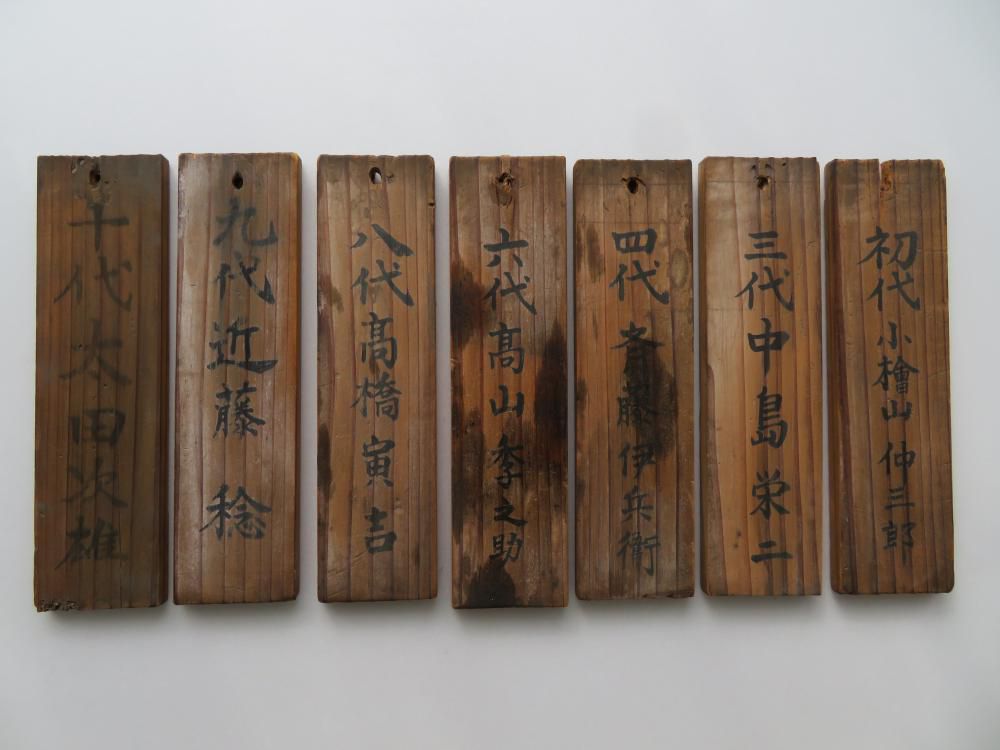 初代 小檜山 仲三郎
三代 中島栄二
四代 斉藤伊兵衛
六代 高山季之助
八代 高橋寅吉
九代 近藤 稔
十代 太田次雄